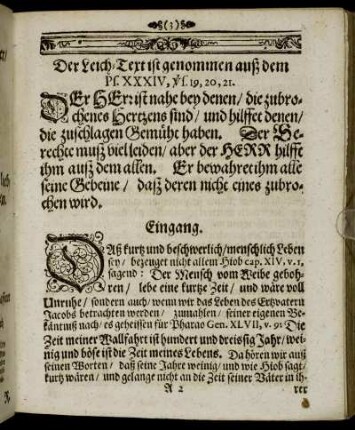 (3)
Der Leich-Text ist genommen auß dem
Ps. XXXIV, ꝟs. 19, 20, 21.
DEr HErr ist nahe bey denen/ die zubro-
chenes Hertzens sind/ und hilffet denen/
die zuschlagen Gemüht haben. Der Ge-
rechte muß viel leiden/ aber der HERR hilfft
ihm auß dem allen. Er bewahret ihm alle
seine Gebeine/ daß deren nicht eines zubro-
chen wird.
Eingang.
DAß kurtz und beschwerlich/ menschlich Leben
sey/ bezeuget nicht allem Hiob cap. XIV, v. 1,
sagend: Der Mensch vom Weibe geboh-
ren/ lebe eine kurtze Zeit/ und wäre voll
Unruhe/ sondern auch/ wenn wir das Leben des Ertzvatern
Jacobs betrachten werden/ zumahlen/ seiner eigenen Be-
käntniß nach/ es geheissen für Pharao Gen. XLVII, v. 9: Die
Zeit meiner Wallfahrt ist hundert und dreissig Jahr/ wei-
nig und böse ist die Zeit meines Lebens. Da hören wir auß
seinen Worten/ daß seine Jahre weinig/ und wie Hiob sagt/
kurtz wären/ und gelange nicht an die Zeit seiner Väter in ih-
A 2 rer